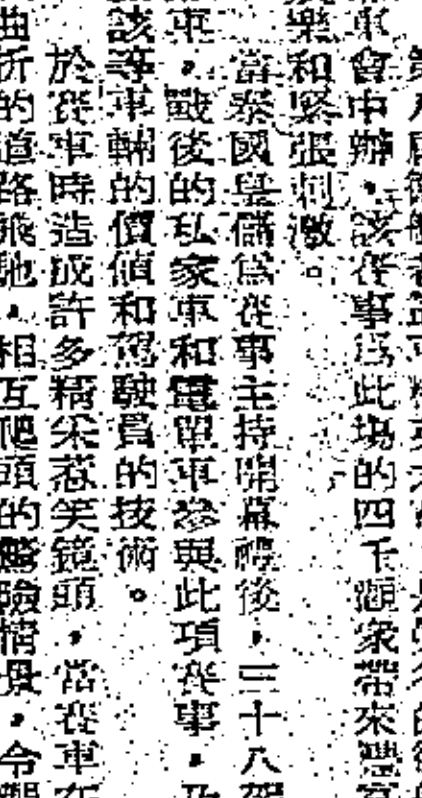 車會中辦，該賽事為此場的四千觀衆帶來豐富
樂和緊張刺激。
當泰國皇儲為賽事主持開幕禮後，三十八架
車，戰後的私家車和電單車參與此項賽事，及
該等車輛的價值和駕駛員的技術。
於賽車時造成許多精采惹笑鏡頭，當賽車在
曲折的道路飛馳，相互爬頭的驚險情景，令觀